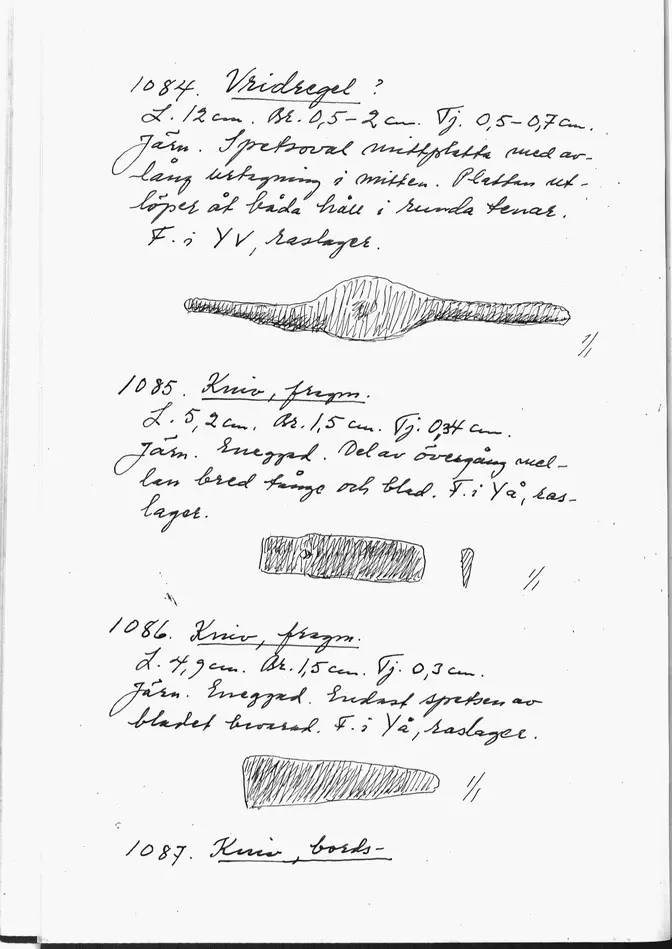 1084. Vridregel ?
L. 12 cm. Br. 0,5-2 cm. Tj. 0,5-0,7 cm.
Järn. Spetsoval mittplatta med av-
lång urtagning i mitten. Plattan ut-
löper åt båda håll i runda tenar.
F. i YV, raslager.
1/1
1085. Kniv, fragm.
L. 5,2 cm. Br. 1,5 cm. Tj. 0,34 cm.
Järn. Eneggad. Del av övergång mel-
lan bred tånge och blad. F. i Yå, ras-
lager.
1/1
1086. Kniv, fragm.
L. 4,9 cm. Br. 1,5 cm. Tj. 0,3 cm.
Järn. Eneggad. Endast spetsen av
bladet bevarad. F. i Yå, raslager.
1/1
1087. Kniv, bords-